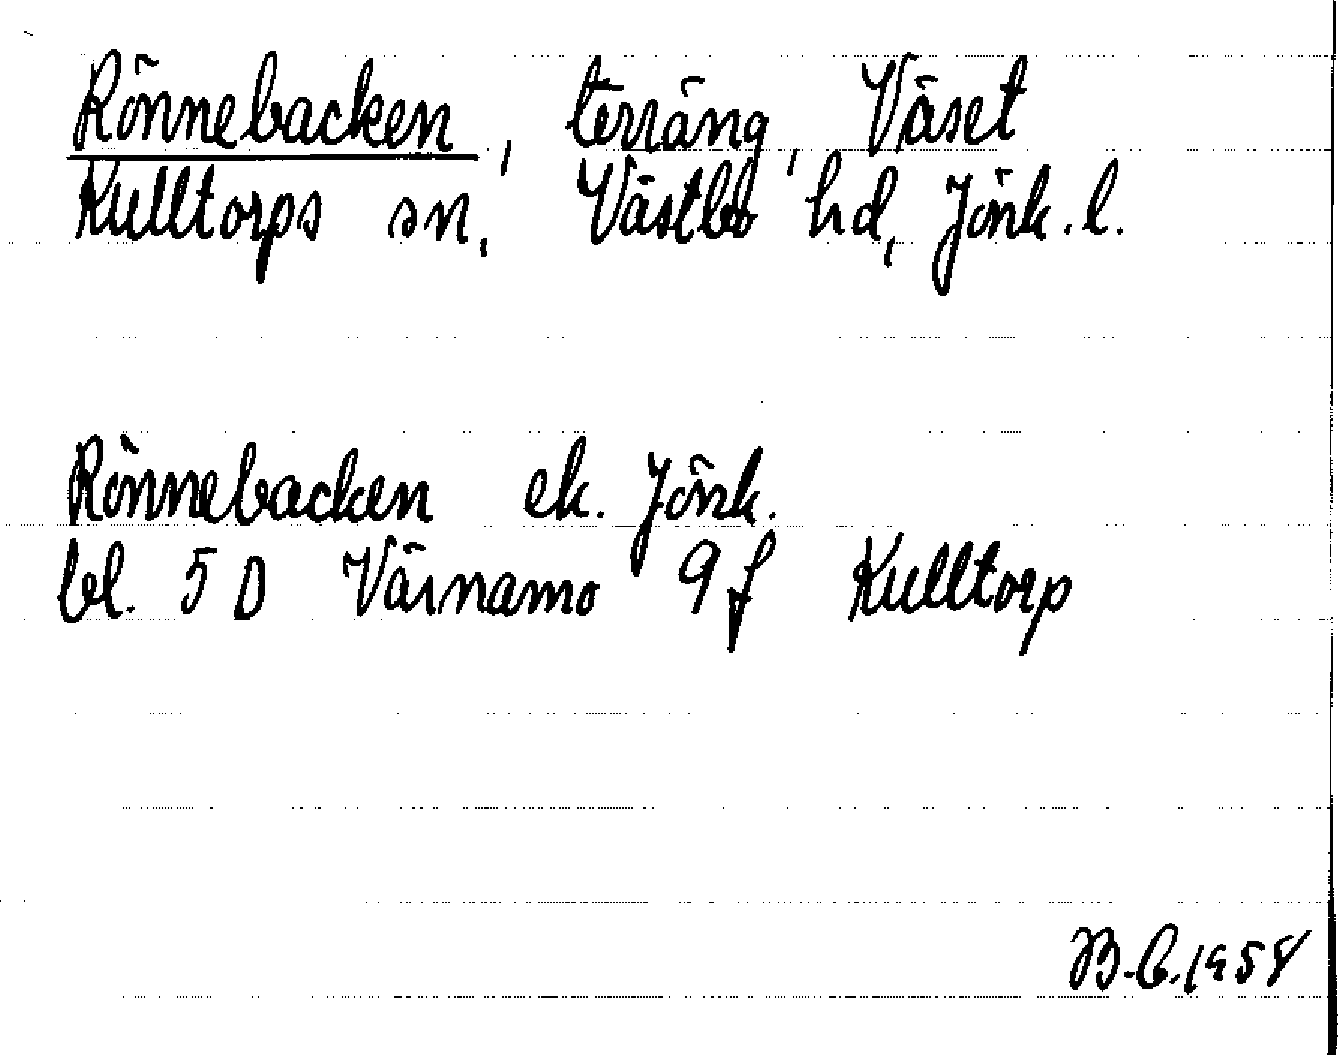 Rönnebacken, terräng, Väset
Kulltorps sn, Västbo hd, Jönk. l.
Rönnebacken ek. Jönk.
bl. 5 D Värnamo 9 f Kulltorp
B.C. 1958